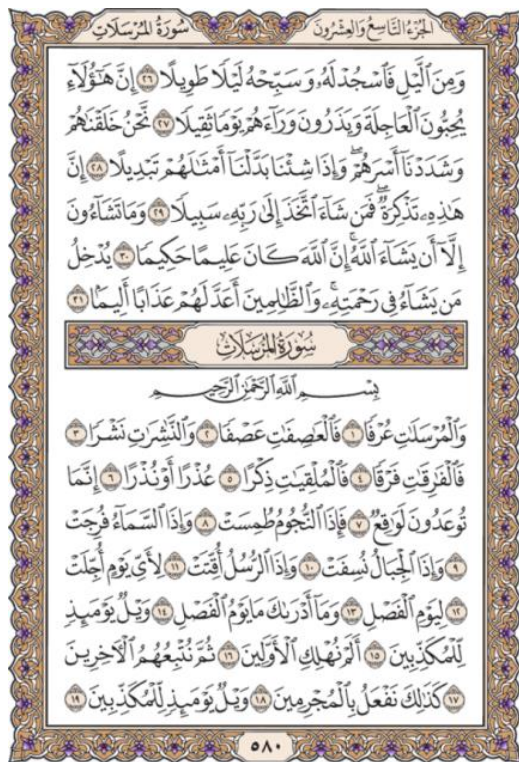 الجزء التاسع والعشرون سورة المرسلات
وَمِنَ ٱلَّيْلِ فَٱسْجُدْ لَهُۥ وَسَبِّحْهُ لَيْلًا طَوِيلًا ٢٦ إِنَّ هَٰٓؤُلَآءِ
يُحِبُّونَ ٱلْعَاجِلَةَ وَيَذَرُونَ وَرَآءَهُمْ يَوْمًا ثَقِيلًا ٢٧ نَّحْنُ خَلَقْنَٰهُمْ
وَشَدَدْنَآ أَسْرَهُمْ ۖ وَإِذَا شِئْنَا بَدَّلْنَآ أَمْثَٰلَهُمْ تَبْدِيلًا ٢٨ إِنَّ
هَٰذِهِۦ تَذْكِرَةٌ ۖ فَمَن شَآءَ ٱتَّخَذَ إِلَىٰ رَبِّهِۦ سَبِيلًا ٢٩ وَمَا تَشَآءُونَ
إِلَّآ أَن يَشَآءَ ٱللَّهُ ۚ إِنَّ ٱللَّهَ كَانَ عَلِيمًا حَكِيمًا ٣٠ يُدْخِلُ
مَن يَشَآءُ فِى رَحْمَتِهِۦ ۚ وَٱلظَّٰلِمِينَ أَعَدَّ لَهُمْ عَذَابًا أَلِيمًۢا ٣١
سُورَةُ المُرْسَلَاتِ
بِسْمِ ٱللَّهِ ٱلرَّحْمَٰنِ ٱلرَّحِيمِ
وَٱلْمُرْسَلَٰتِ عُرْفًا ١ فَٱلْعَٰصِفَٰتِ عَصْفًا ٢ وَٱلنَّٰشِرَٰتِ نَشْرًا ٣
فَٱلْفَٰرِقَٰتِ فَرْقًا ٤ فَٱلْمُلْقِيَٰتِ ذِكْرًا ٥ عُذْرًا أَوْ نُذْرًا ٦ إِنَّمَا
تُوعَدُونَ لَوَٰقِعٌ ٧ فَإِذَا ٱلنُّجُومُ طُمِسَتْ ٨ وَإِذَا ٱلسَّمَآءُ فُرِجَتْ
٩ وَإِذَا ٱلْجِبَالُ نُسِفَتْ ١٠ وَإِذَا ٱلرُّسُلُ أُقِّتَتْ ١١ لِأَىِّ يَوْمٍ أُجِّلَتْ
١٢ لِيَوْمِ ٱلْفَصْلِ ١٣ وَمَآ أَدْرَىٰكَ مَا يَوْمُ ٱلْفَصْلِ ١٤ وَيْلٌ يَوْمَئِذٍ
لِّلْمُكَذِّبِينَ ١٥ أَلَمْ نُهْلِكِ ٱلْأَوَّلِينَ ١٦ ثُمَّ نُتْبِعُهُمُ ٱلْءَاخِرِينَ
١٧ كَذَٰلِكَ نَفْعَلُ بِٱلْمُجْرِمِينَ ١٨ وَيْلٌ يَوْمَئِذٍ لِّلْمُكَذِّبِينَ ١٩
٥٨٠